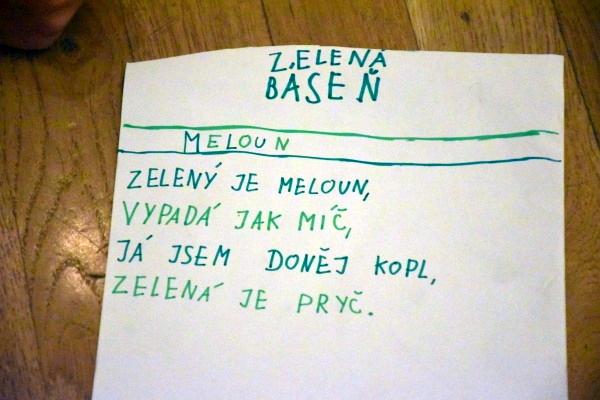 ZELENÁ
BASEŇ
MELOUN
ZELENÝ JE MELOUN,
VYPADÁ JAK MÍČ,
JÁ JSEM DONĚJ KOPL,
ZELENÁ JE PRYČ.